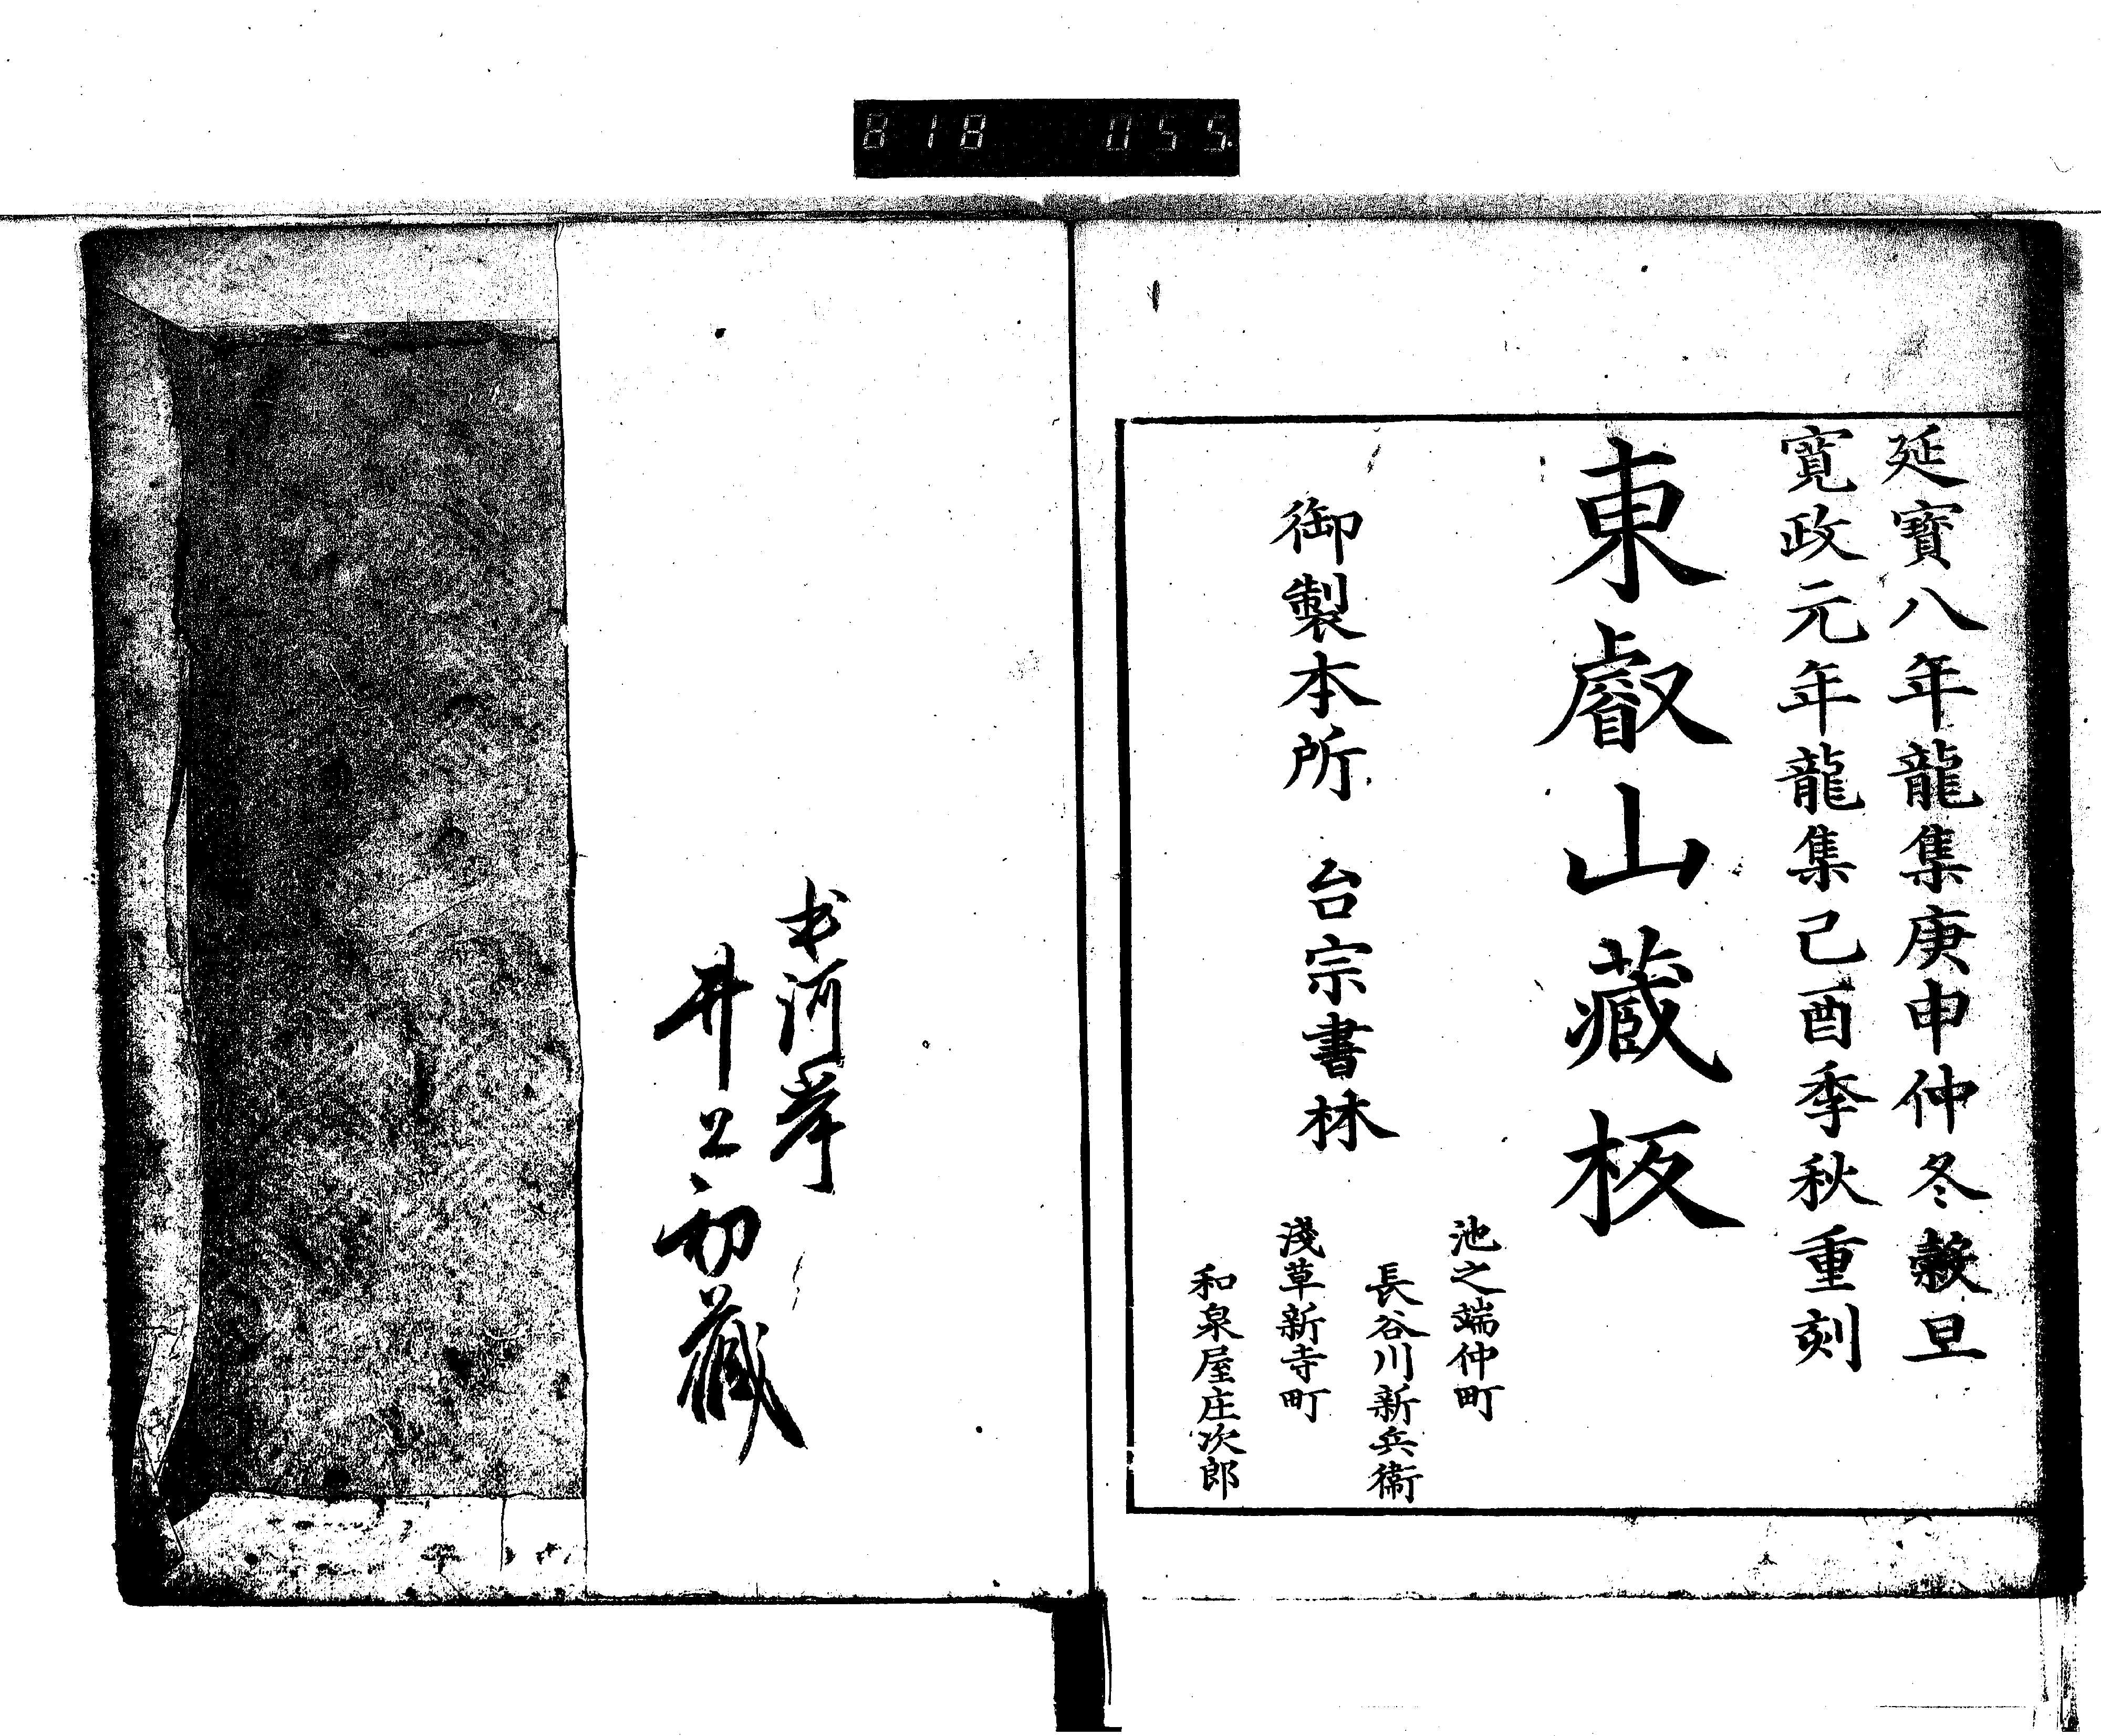 818 055
延寶八年龍集庚申仲冬穀旦
寛政元年龍集己酉季秋重刻
東叡山藏板
御製本所 台宗書林
池之端仲町
長谷川新兵衞
淺草新寺町
和泉屋庄次郎
河岸
井上
藏